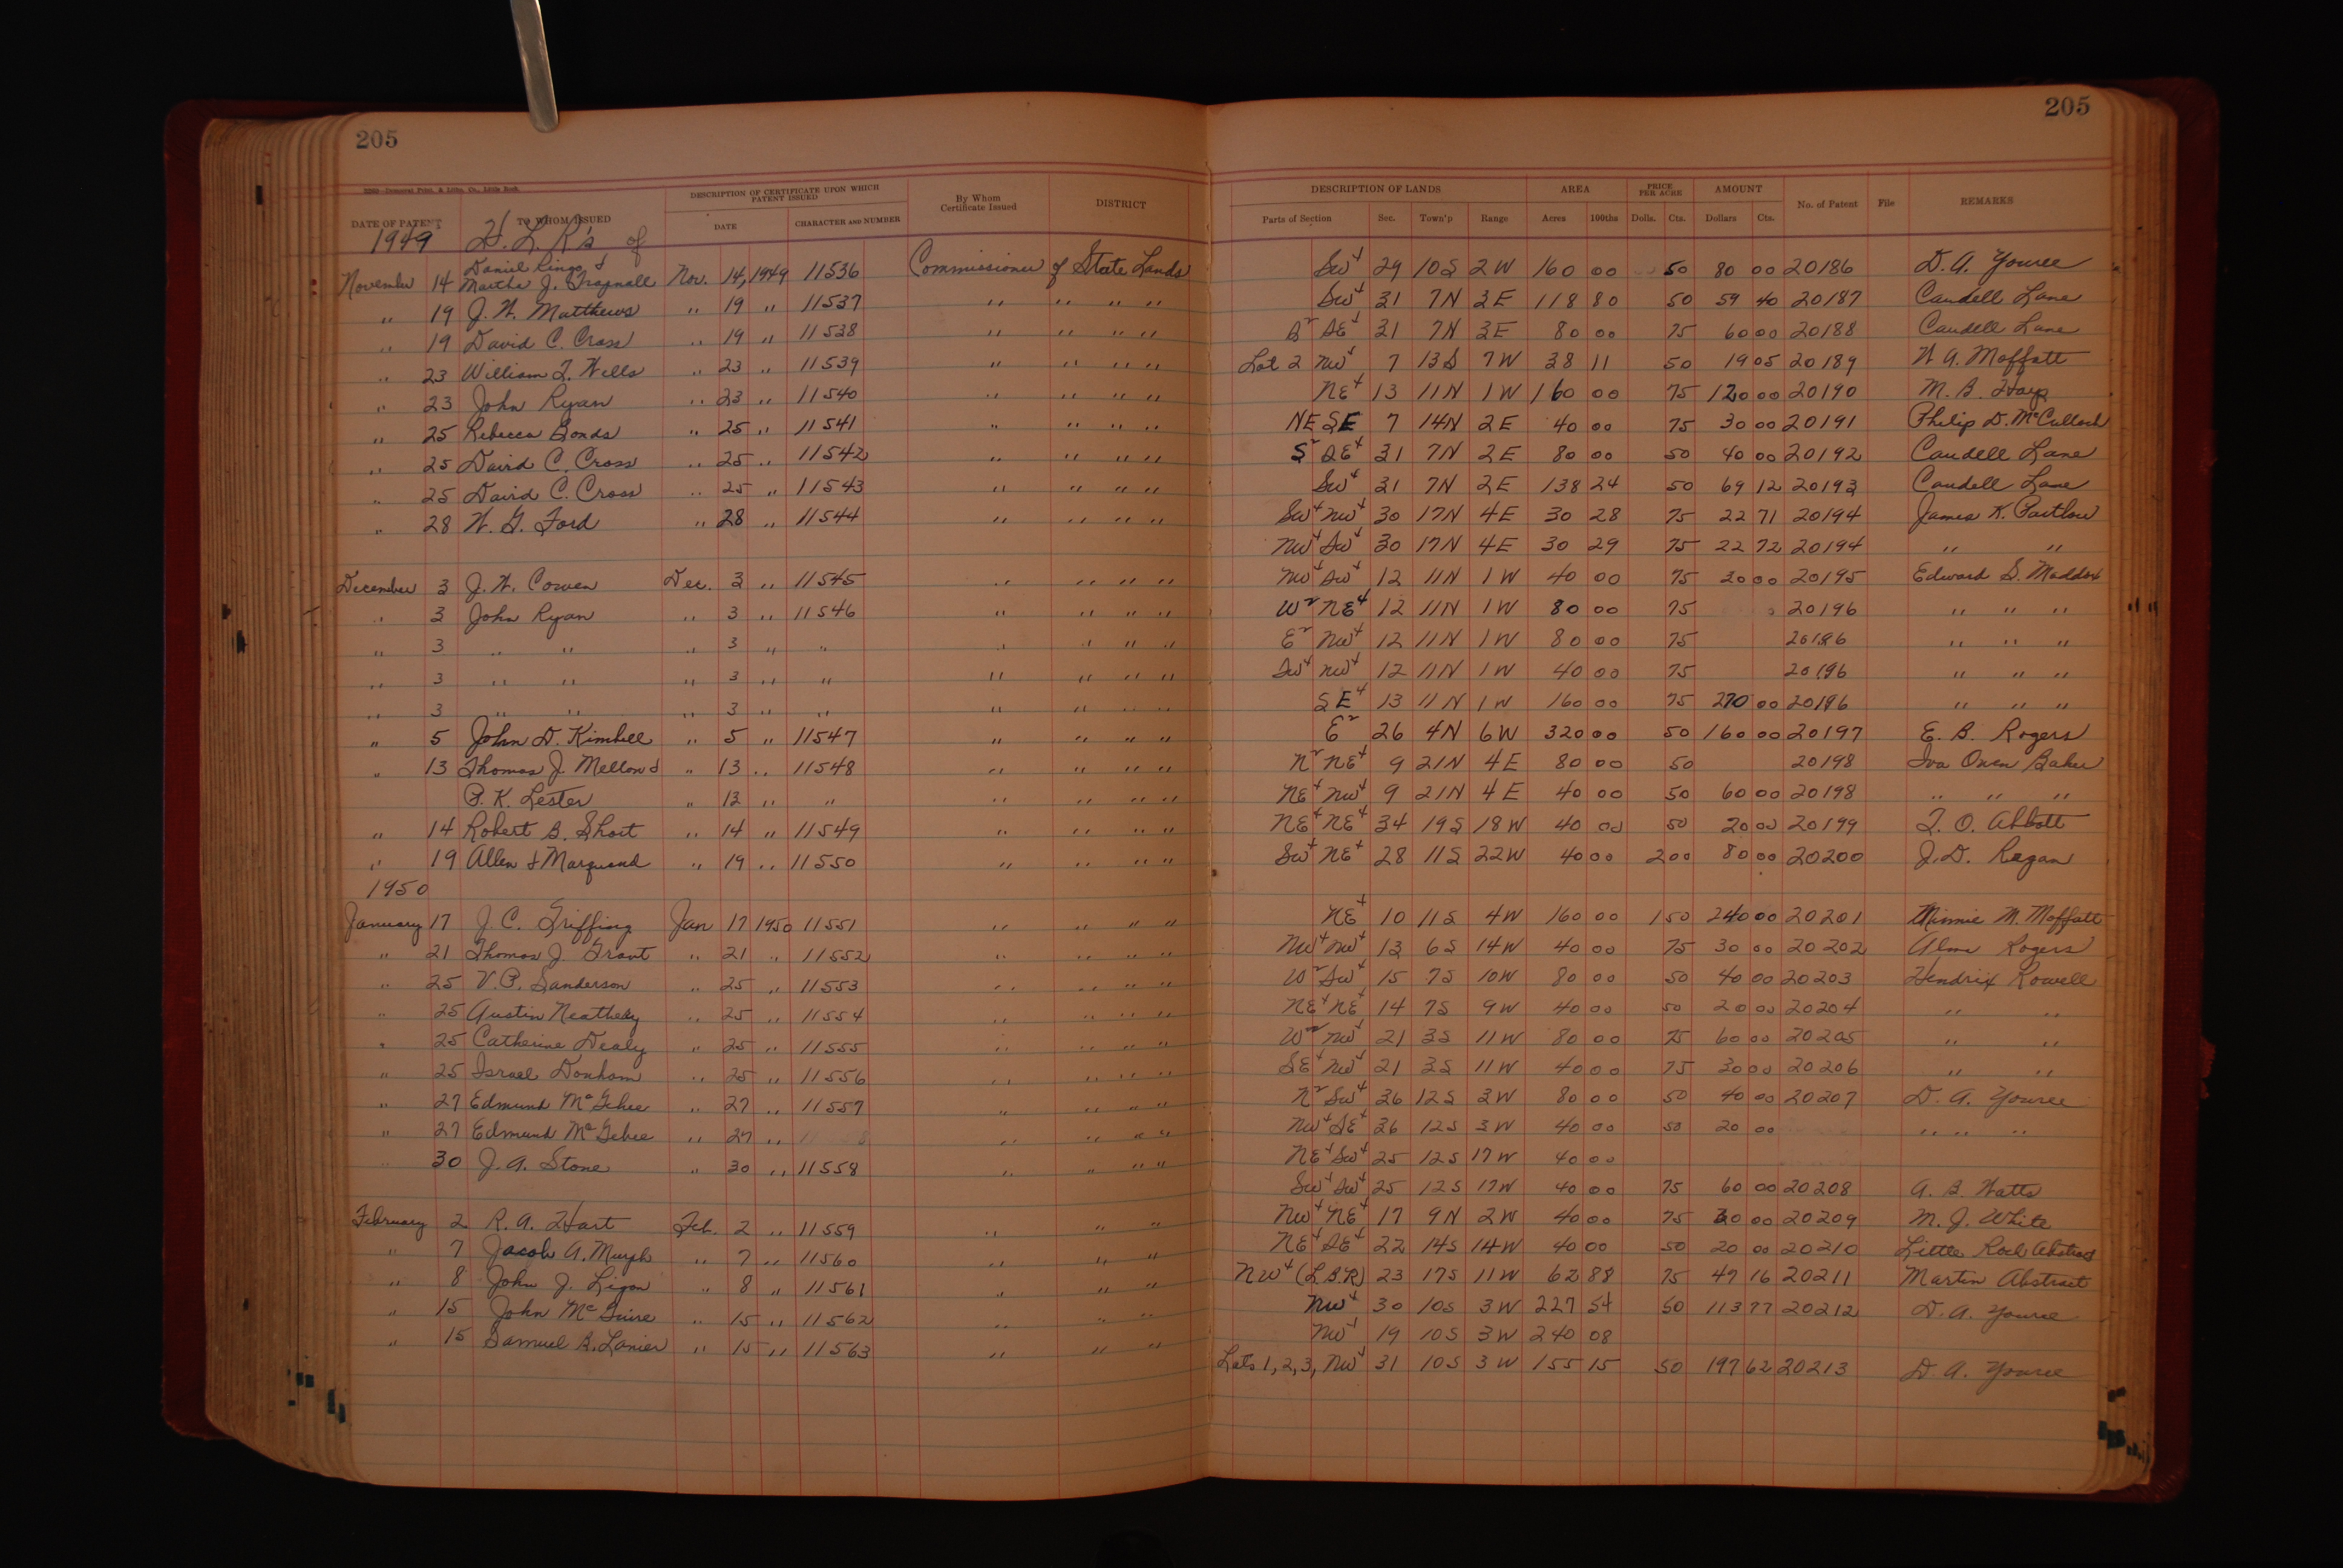 205 205
2260—Democrat Print. & Litho. Co., Little Rock
DATE OF PATENT TO WHOM ISSUED DESCRIPTION OF CERTIFICATE UPON WHICH PATENT ISSUED DATE CHARACTER AND NUMBER By Whom Certificate Issued DISTRICT DESCRIPTION OF LANDS Parts of Section Sec. Town'p Range AREA Acres 100ths PRICE PER ACRE Dolls. Cts. AMOUNT Dollars Cts. No. of Patent File REMARKS
1949 H. L. R's of
Daniel Ringo &
November 14 Martha J. Trapnall Nov. 14, 1949 11536 Commissioner of State Lands SW4 29 10S 2W 160 00 50 80 00 20186 D. A. Youree
" 19 J. W. Matthews " 19 " 11537 " " " " SW4 31 7N 3E 118 80 50 59 40 20187 Caudell Lane
" 19 David C. Cross " 19 " 11538 " " " " S2 SE4 31 7N 3E 80 00 75 60 00 20188 Caudell Lane
" 23 William T. Wells " 23 " 11539 " " " " Lot 2 NW4 7 13S 7W 38 11 50 19 05 20189 W. A. Moffatt
" 23 John Ryan " 23 " 11540 " " " " NE4 13 11N 1W 160 00 75 120 00 20190 M. B. Harp
" 25 Rebecca Bonds " 25 " 11541 " " " " NE SE 7 14N 2E 40 00 75 30 00 20191 Philip D. McCulloch
" 25 David C. Cross " 25 " 11542 " " " " S2 SE4 31 7N 2E 80 00 50 40 00 20192 Caudell Lane
" 25 David C. Cross " 25 " 11543 " " " " SW4 31 7N 2E 138 24 50 69 12 20193 Caudell Lane
" 28 W. G. Ford " 28 " 11544 " " " " SW4 NW4 30 17N 4E 30 28 75 22 71 20194 James K. Partlow
NW4 SW4 30 17N 4E 30 29 75 22 72 20194 " "
December 3 J. W. Cowen Dec. 3 " 11545 " " " " NW4 SW4 12 11N 1W 40 00 75 30 00 20195 Edward S. Maddox
" 3 John Ryan " 3 " 11546 " " " " W2 NE4 12 11N 1W 80 00 75 20196 " " "
" 3 " " " 3 " " " " " " E2 NW4 12 11N 1W 80 00 75 20196 " " "
" 3 " " " 3 " " " " " " SW4 NW4 12 11N 1W 40 00 75 20196 " " "
" 3 " " " 3 " " " " " " SE4 13 11N 1W 160 00 75 270 00 20196 " " "
" 5 John D. Kimbell " 5 " 11547 " " " " E2 26 4N 6W 320 00 50 160 00 20197 E. B. Rogers
" 13 Thomas J. Mellon & " 13 " 11548 " " " " N2 NE4 9 21N 4E 80 00 50 20198 Iva Owen Baker
P. K. Lester " 13 " " " " " " NE4 NW4 9 21N 4E 40 00 50 60 00 20198 " " "
" 14 Robert B. Short " 14 " 11549 " " " " NE4 NE4 34 19S 18W 40 00 50 20 00 20199 T. O. Abbott
" 19 Allen & Marquand " 19 " 11550 " " " " SW4 NE4 28 11S 22W 40 00 2 00 80 00 20200 J. D. Regan
1950
January 17 J. C. Griffing Jan 17 1950 11551 " " " " NE4 10 11S 4W 160 00 1 50 240 00 20201 Minnie M. Moffatt
" 21 Thomas J. Grant " 21 " 11552 " " " " NW4 NW4 13 6S 14W 40 00 75 30 00 20202 Alma Rogers
" 25 V. P. Sanderson " 25 " 11553 " " " " W2 SW4 15 7S 10W 80 00 50 40 00 20203 Hendrix Rowell
" 25 Austin Neathery " 25 " 11554 " " " " NE4 NE4 14 7S 9W 40 00 50 20 00 20204 " "
" 25 Catherine Dealy " 25 " 11555 " " " " W2 NW4 21 3S 11W 80 00 75 60 00 20205 " "
" 25 Israel Donham " 25 " 11556 " " " " SE4 NW4 21 3S 11W 40 00 75 30 00 20206 " "
" 27 Edmund McGehee " 27 " 11557 " " " " N2 SW4 36 12S 3W 80 00 50 40 00 20207 D. A. Youree
" 27 Edmund McGehee " 27 " " " " " NW4 SE4 36 12S 3W 40 00 50 20 00 " " "
" 30 J. A. Stone " 30 " 11558 " " " " NE4 SW4 25 12S 17W 40 00
SW4 SW4 25 12S 17W 40 00 75 60 00 20208 A. B. Watts
February 2 R. A. Hart Feb. 2 " 11559 " " " NW4 NE4 17 9N 2W 40 00 75 30 00 20209 M. J. White
" 7 Jacob A. Murph " 7 " 11560 " " " NE4 SE4 22 14S 14W 40 00 50 20 00 20210 Little Rock Abstract
" 8 John J. Ligon " 8 " 11561 " " " NW4 (L.B.R) 23 17S 11W 62 88 75 47 16 20211 Martin Abstract
" 15 John McGuire " 15 " 11562 " " " NW4 30 10S 3W 227 54 50 113 77 20212 D. A. Youree
" 15 Samuel B. Lanier " 15 " 11563 " " " NW4 19 10S 3W 240 08
Lots 1, 2, 3, NW4 31 10S 3W 155 15 50 197 62 20213 D. A. Youree